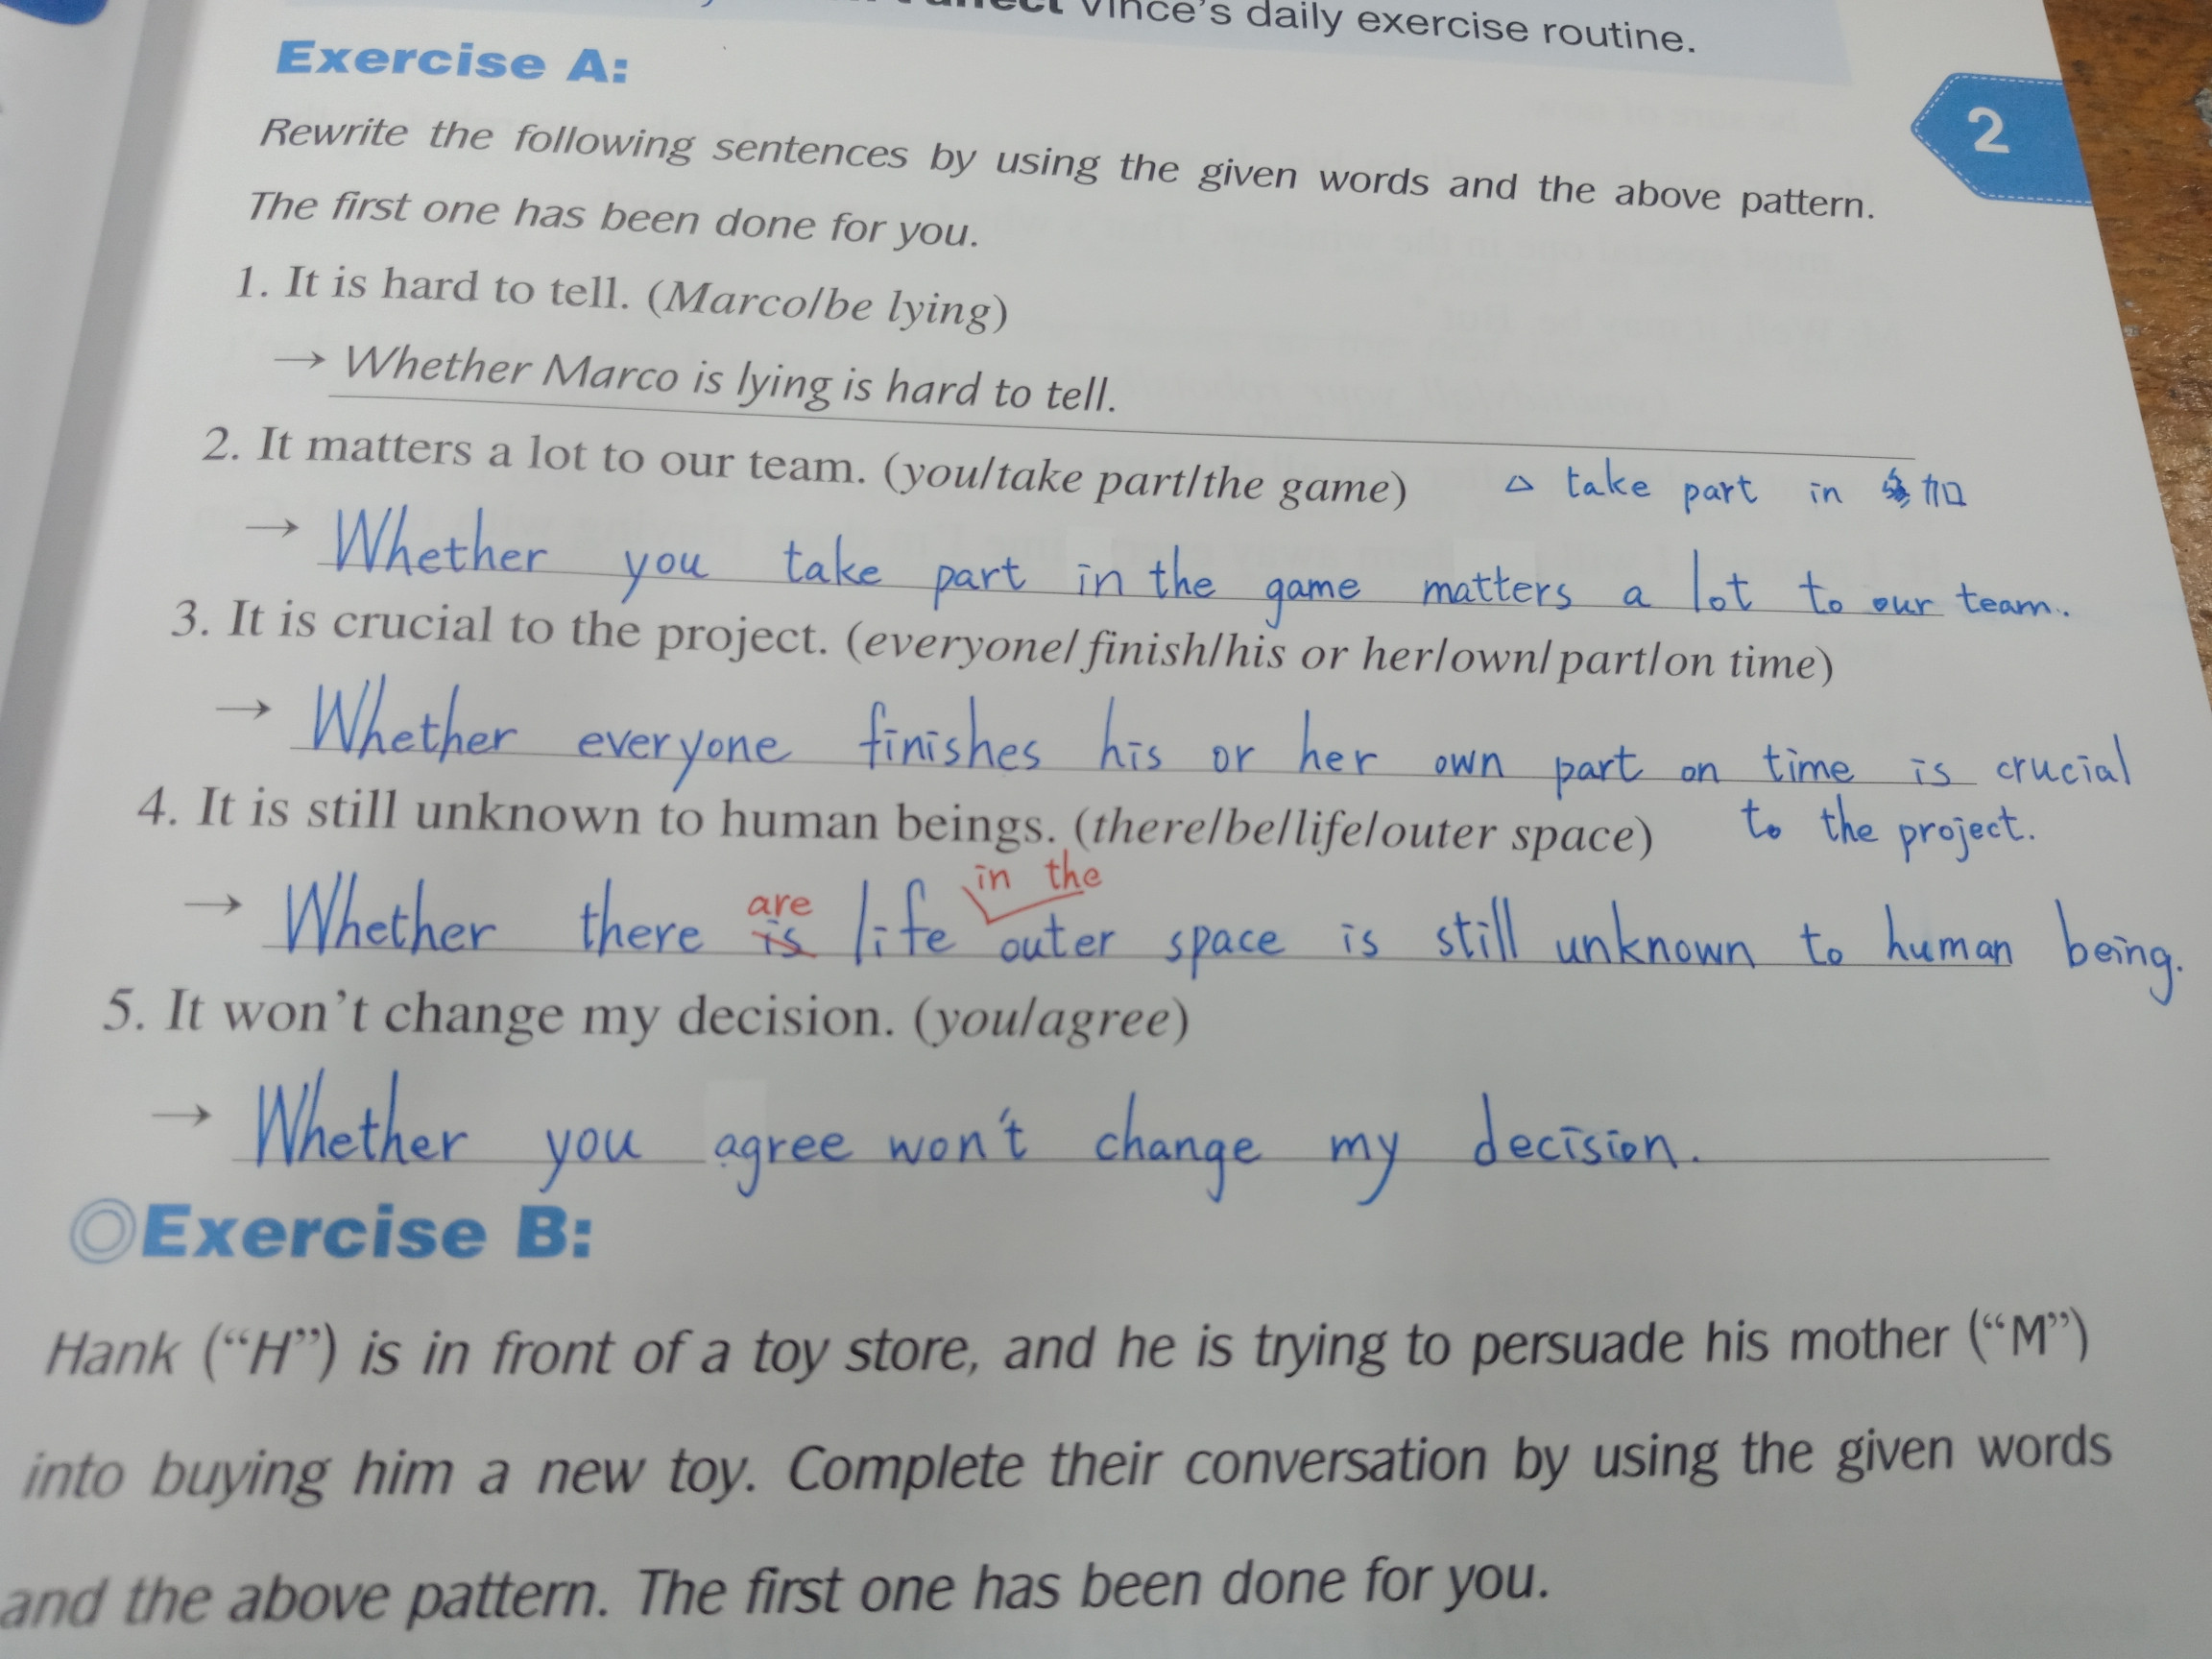 affect Vince's daily exercise routine.
Exercise A:
2
Rewrite the following sentences by using the given words and the above pattern.
The first one has been done for you.
1. It is hard to tell. (Marco/be lying)
→ Whether Marco is lying is hard to tell.
2. It matters a lot to our team. (you/take part/the game) △ take part in 參加
→ Whether you take part in the game matters a lot to our team.
3. It is crucial to the project. (everyone/finish/his or her/own/part/on time)
→ Whether everyone finishes his or her own part on time is crucial
to the project.
4. It is still unknown to human beings. (there/be/life/outer space)
are in the
→ Whether there is life outer space is still unknown to human being.
5. It won't change my decision. (you/agree)
→ Whether you agree won't change my decision.
◎Exercise B:
Hank (“H”) is in front of a toy store, and he is trying to persuade his mother (“M”)
into buying him a new toy. Complete their conversation by using the given words
and the above pattern. The first one has been done for you.